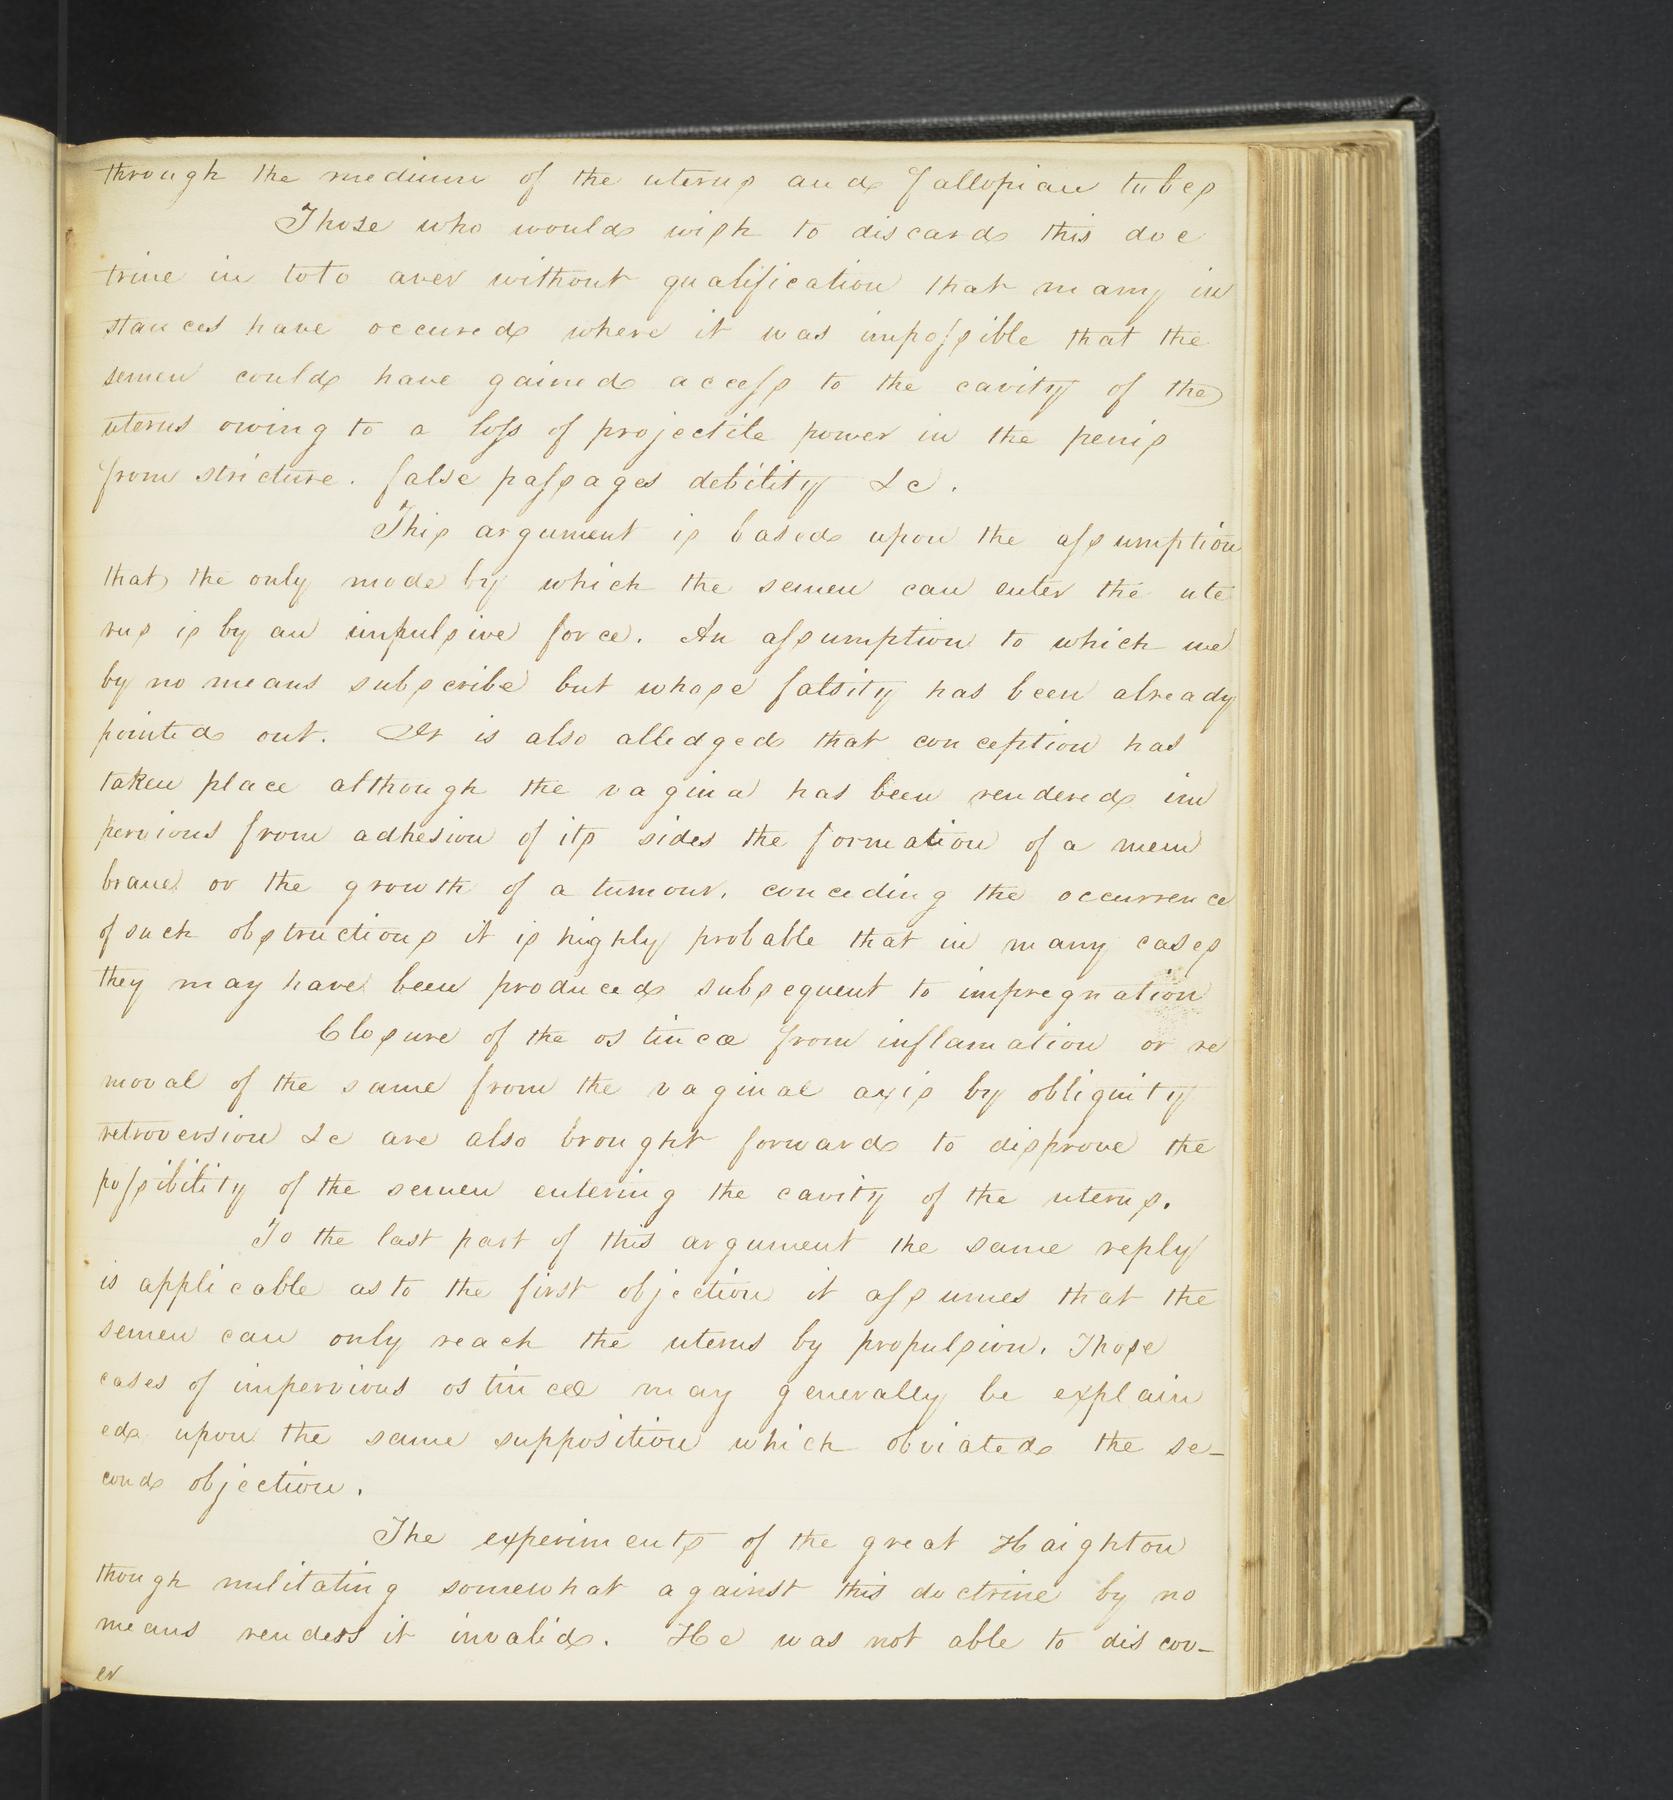 through the medium of the uterus and fallopian tubes
Those who would wish to discard this doc
trine in toto aver without qualification that many in
stances have occured where it was impossible that the
semen could have gained access to the cavity of the
uterus owing to a loss of projectile power in the penis
from stricture. false passages debility &c.
This argument is based upon the assumption
that the only mode by which the semen can enter the ute
rus is by an impulsive force. An assumption to which we
by no means subscribe but whose falsity has been already
pointed out. It is also alledged that conception has
taken place although the vagina has been rendered im
pervious from adhesion of its sides the formation of a mem
brane or the growth of a tumour. conceding the occurrence
of such obstructions it is highly probable that in many cases
they may have been produced subsequent to impregnation
Closure of the os tincæ from inflamation or re
moval of the same from the vaginal axis by obliquity
retroversion &c are also brought forward to disprove the
possibility of the semen entering the cavity of the uterus.
To the last part of this argument the same reply
is applicable as to the first objection it assumes that the
semen can only reach the uterus by propulsion. Those
cases of impervious os tincæ may generally be explain
ed upon the same supposition which obviated the se-
cond objection.
The experiments of the great Haighton
though militating somewhat against this doctrine by no
means renders it invalid. He was not able to discov-
er